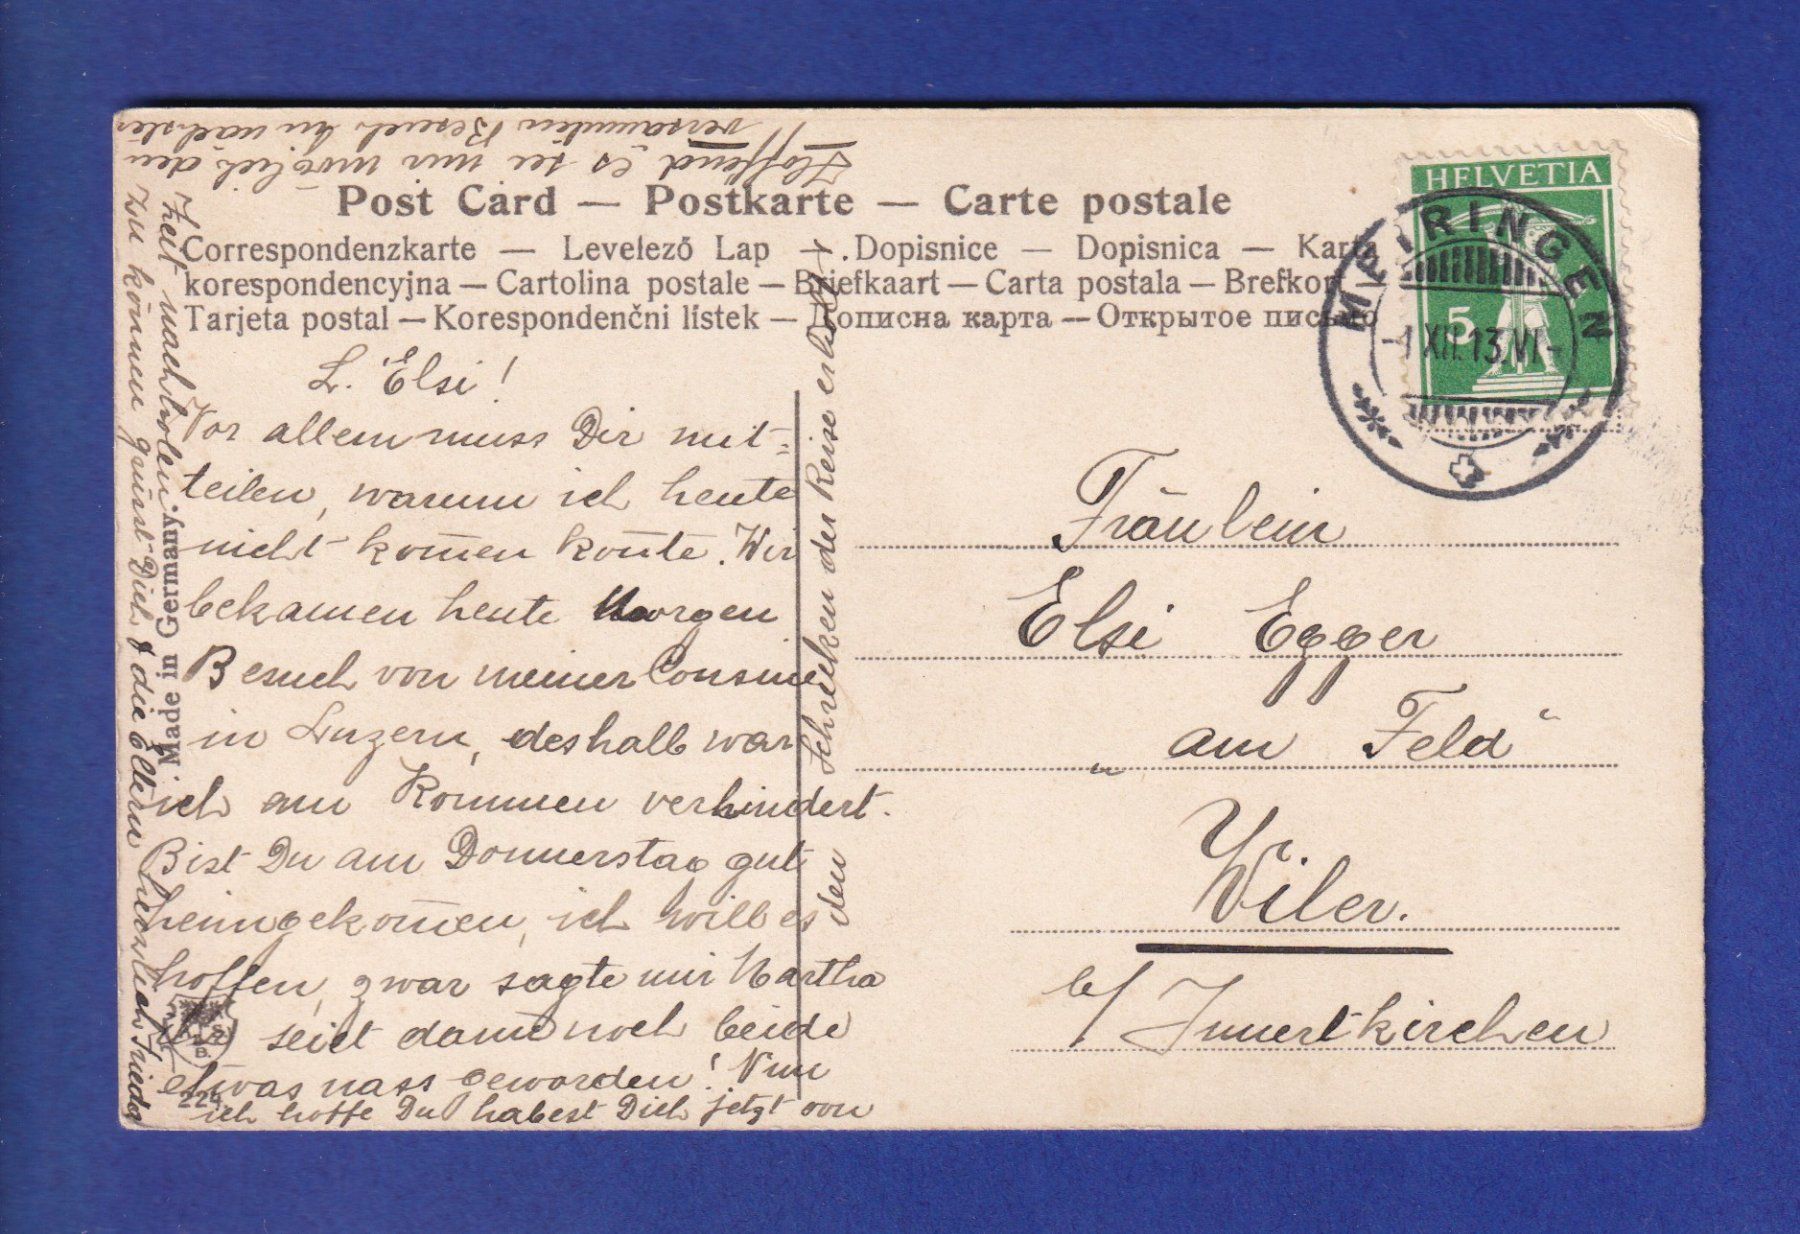 Post Card — Postkarte — Carte postale
Correspondenzkarte — Levelező Lap — Dopisnice — Dopisnica — Karta
korespondencyjna — Cartolina postale — Briefkaart — Carta postala — Brefkort
Tarjeta postal — Korespondenčni listek — Дописна карта — Открытое письмо
L. Elsi!
Vor allem muss Dir mit-
teilen, warum ich heute
nicht kom̅en kon̅te. Wir
bekamen heute Morgen
Besuch von meiner Cousine
in Luzern, deshalb war
ich am Kommen verhindert.
Bist Du am Donnerstag gut
heimgekom̅en, ich will es
hoffen, zwar sagte mir Martha
seiet dann noch beide
etwas nass geworden! Nun
ich hoffe Du habest Dich jetzt von
den Schrecken der Reise erholt.
Hoffend es sei mir möglich den
versäumten Besuch in nächster
Zeit nachholen
zu können grüsst Dich & die Eltern herzlich Frieda
Made in Germany.
B.
224
HELVETIA
5
MEIRINGEN
-1 XII.13.VI-
Fräulein
Elsi Egger
„am Feld“
Wiler.
b/ Innertkirchen